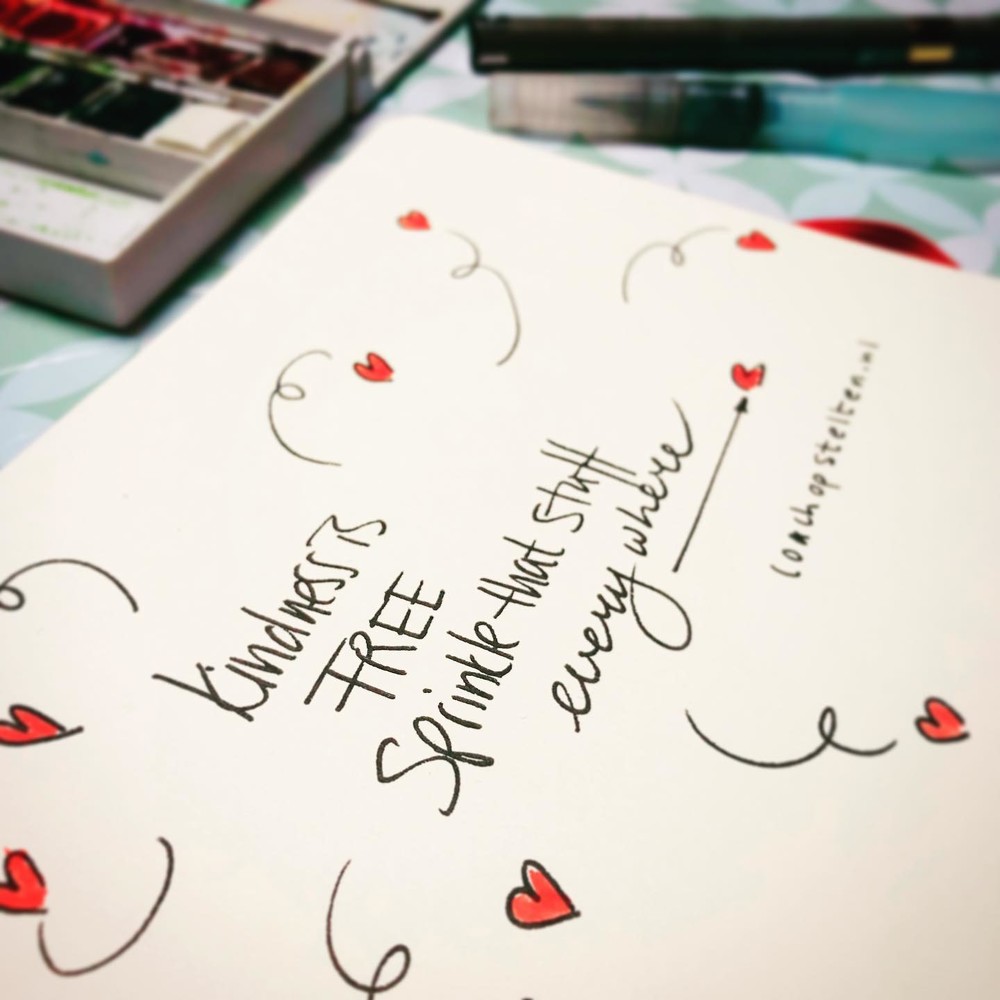 Kindness is
FREE
Sprinkle that stuff
every where
coachopstelten.nl